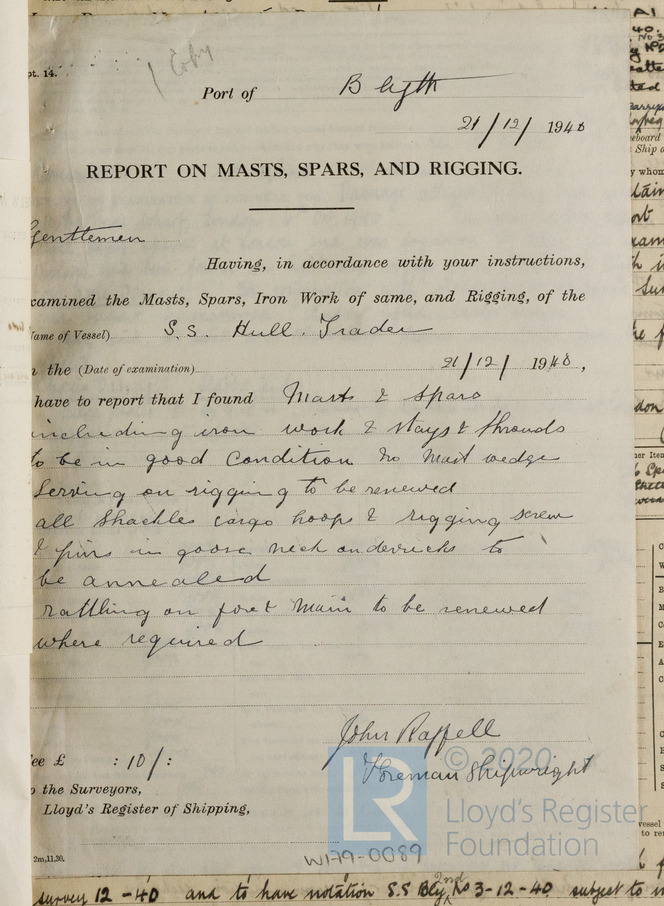 pt. 14.
1 Copy
Port of Blyth
21/12/1940
REPORT ON MASTS, SPARS, AND RIGGING.
Gentlemen
Having, in accordance with your instructions,
xamined the Masts, Spars, Iron Work of same, and Rigging, of the
ame of Vessel) S.S. Hull Trader
n the (Date of examination) 21/12/1940,
have to report that I found Masts & spars
including iron work & stays & shrouds
to be in good condition no mast wedge
Serving on rigging to be renewed
all shackles cargo hoops & rigging screw
& pins in goose neck on derricks to
be annealed
rattling on fore & main to be renewed
where required
John Raffell
Foreman Shipwright
ee £ : 10/ :
o the Surveyors,
Lloyd's Register of Shipping,
2m,11,30.
LR © 2020
Lloyd's Register
Foundation
W179-0089
survey 12-40 and to have notation S.S Bly 2nd No 3-12-40 subject to